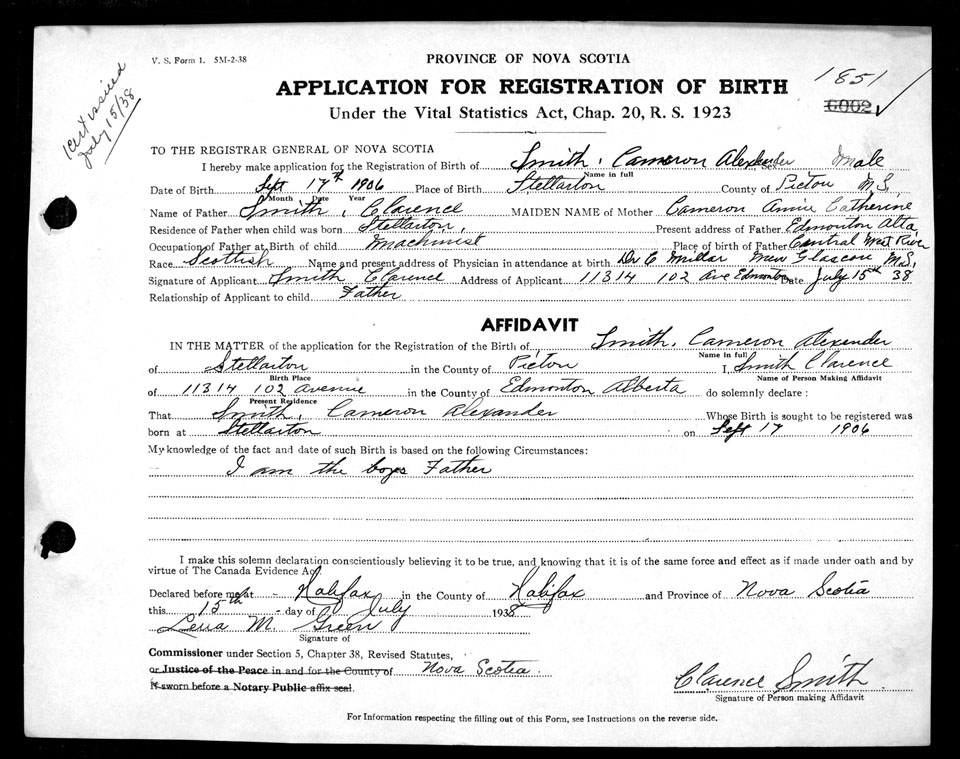 V. S. Form 1. 5M-2-38
PROVINCE OF NOVA SCOTIA
1 Cert issued
July 15/38
APPLICATION FOR REGISTRATION OF BIRTH
1851
6902
Under the Vital Statistics Act, Chap. 20, R. S. 1923
TO THE REGISTRAR GENERAL OF NOVA SCOTIA
I hereby make application for the Registration of Birth of Smith, Cameron Alexander Sex Male
Name in full
Date of Birth Sept 17th 1906 Place of Birth Stellarton County of Pictou N.S,
Month Date Year
Name of Father Smith, Clarence MAIDEN NAME of Mother Cameron Annie Catherine
Residence of Father when child was born Stellarton, Present address of Father Edmonton Alta
Occupation of Father at Birth of child Machinist Place of birth of Father Central West River
Race Scottish Name and present address of Physician in attendance at birth Dr C Millar New Glascow N.S,
Signature of Applicant Smith Clarence Address of Applicant 11314 102 Ave Edmonton Date July 15th 38
Relationship of Applicant to child Father
AFFIDAVIT
IN THE MATTER of the application for the Registration of the Birth of Smith, Cameron Alexander
Name in full
of Stellarton in the County of Pictou I, Smith Clarence
Birth Place Name of Person Making Affidavit
of 11314 102 Avenue in the County of Edmonton Alberta do solemnly declare :
Present Residence
That Smith, Cameron Alexander Whose Birth is sought to be registered was
born at Stellarton on Sept 17 1906
My knowledge of the fact and date of such Birth is based on the following Circumstances:
I am the boys Father
I make this solemn declaration conscientiously believing it to be true, and knowing that it is of the same force and effect as if made under oath and by
virtue of The Canada Evidence Act
Declared before me at - Halifax in the County of Halifax and Province of Nova Scotia
this 15th - day of July 1938
M. Green
Signature of
Commissioner under Section 5, Chapter 38, Revised Statutes,
or Justice of the Peace in and for the County of Nova Scotia.
If sworn before a Notary Public affix seal.
Clarence Smith
Signature of Person making Affidavit
For Information respecting the filling out of this Form, see Instructions on the reverse side.